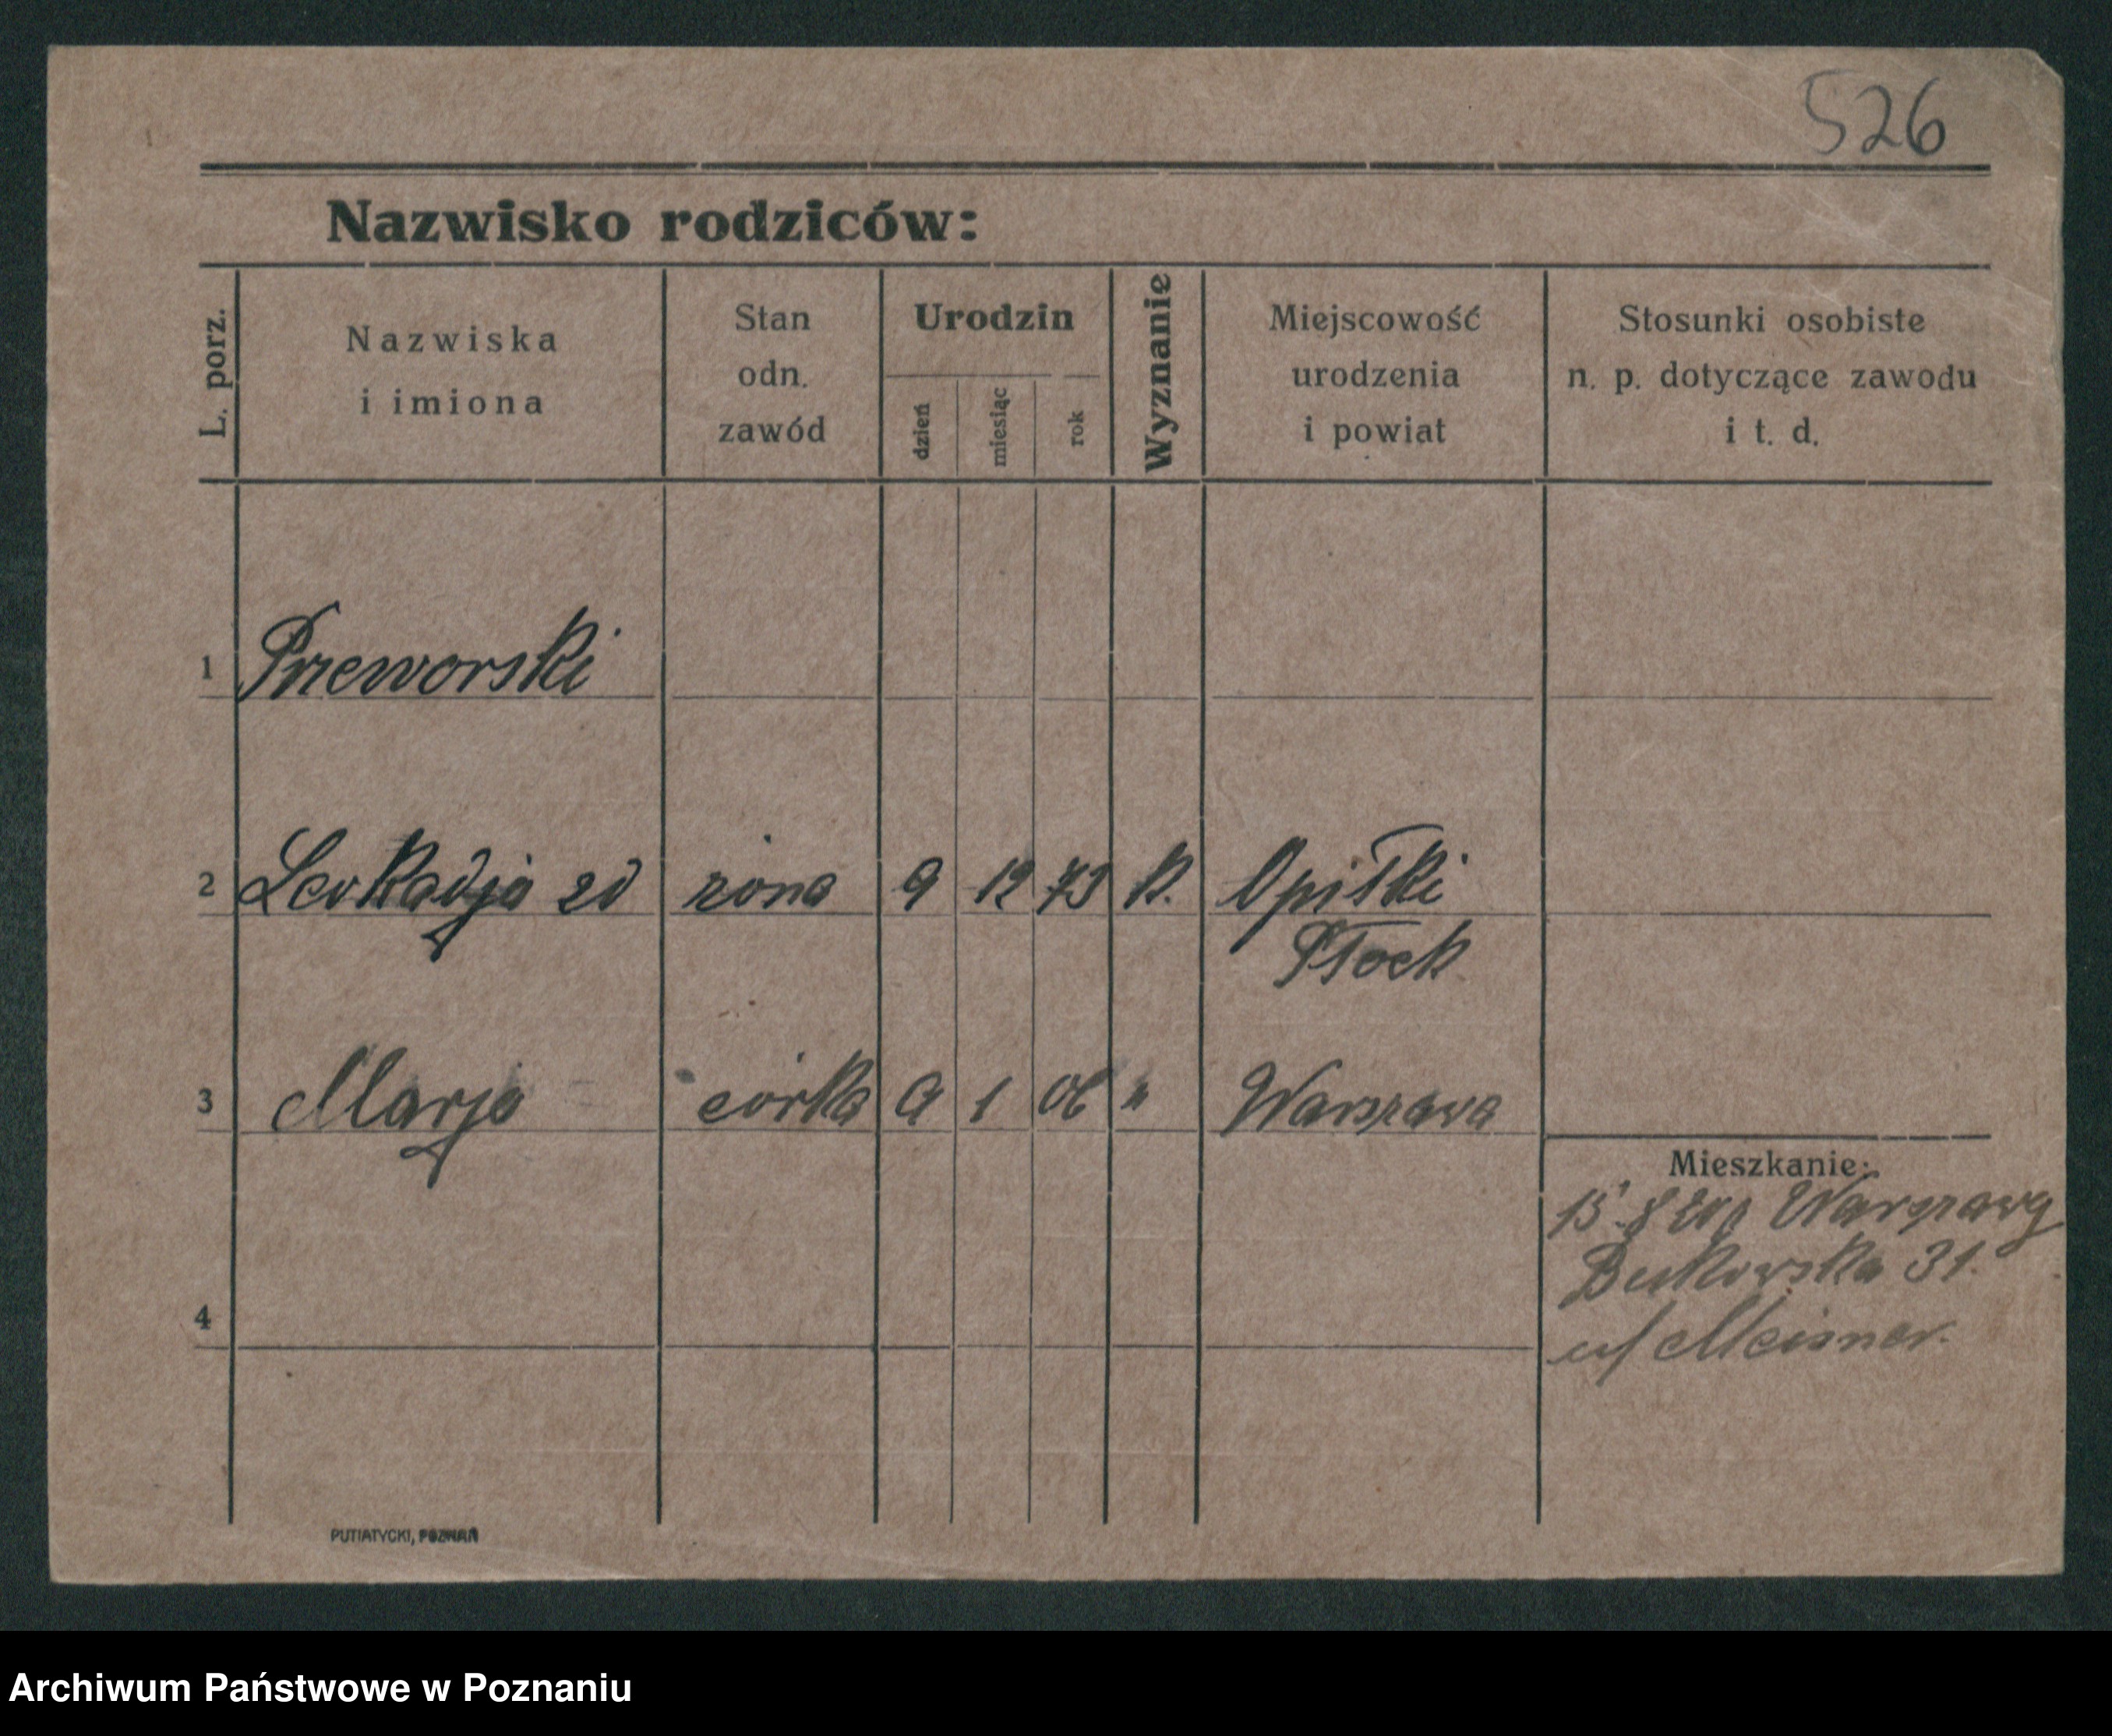 526
Nazwisko rodziców:
L. porz.
Nazwiska
i imiona
Stan
odn.
zawód
Urodzin
dzień
miesiąc
rok
Wyznanie
Miejscowość
urodzenia
i powiat
Stosunki osobiste
n. p. dotyczące zawodu
i t. d.
1 Przeworski
2 Leokadja zd żona 9 12 73 k. Opiłki
Płock
3 Marja córka 9 1 06 " Warszawa
Mieszkanie:
15. 8 Warszawy
Bukowska 31.
u/ Meisner.
4
PUTIATYCKI, POZNAŃ
Archiwum Państwowe w Poznaniu